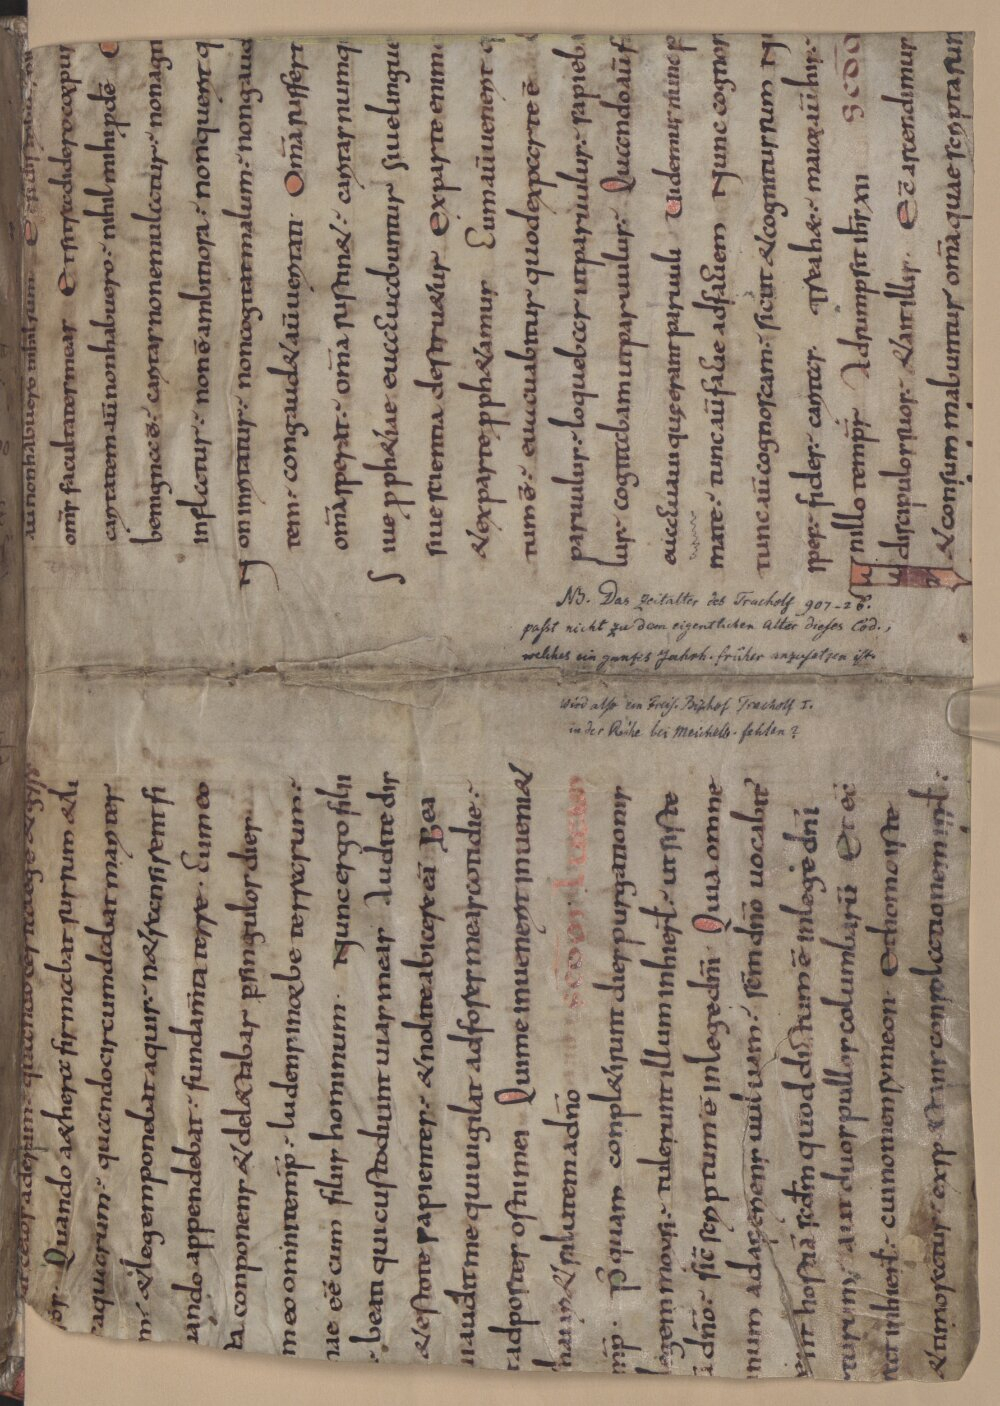 omīs facultates meas Et si tradidero corpus
caritatem aū non habuero· nihil mihi p̄dē
benigna ē· caritas non emulatur· non agit
inflatur· non ē ambitiosa· non querit q
on irritatur· non cogitat malum· non gaud
tem· congaudet aū ueritati· Om̄a suffert
om̄a sperat· om̄a sustinet· caritas numq
Siue pphetiae euacuabuntur siue lingue
siue scientia destruetur Ex parte enim
et ex parte pphetamus Cum aū uenerit
tum ē· euacuabitur quod ex parte ē
paruulus· loquebar ut paruulus· sapieb
lus· cogitabam ut paruulus· Quando aū f
euacuaui que erant paruuli Uidemus nunc p
mate· tunc aū facie ad faciem Nunc cognos
tunc aū cognoscam· sicut et cognitus sum N
spes· fides· caritas· tria haec· maior aū his·
In illo tempr̄ Adsumpsit ih̄s xii SCDM
discipulos suos· et ait illis· Ecce ascendimus
et consummabuntur om̄a quae scripta sun
NB. Das Zeitalter des Tracholf 907–26.
passt nicht zu dem eigentlichen Alter dieses Cod.,
welches ein ganzes Jahrh. früher anzusetzen ist.
Wird also ein Freis. Bischof Tracholf I.
in der Reihe bei Meichelb. fehlen?
Quando aethera firmabat sursum et li
aquarum· quando circumdabat mari ter
et legem ponebat aquis· ne transirent fi
ando appendebat· fundam̄ta terre· Cum eo
ta componens et delectabar p singulos dies
m eo omni temp̄· ludens in orbe terrarum·
meae eē cum filiis hominum· Nunc ergo filii
· beati qui custodiunt uias meas Audite dis
et estote sapientes· et nolite abicere eā Bea
i audit me qui uigilat ad fores meas cotidie·
ad postes ostii mei Qui me inuenerit inueniet
et salutem a dn̄o
mp̄· Postquam completi sunt dies purgationis
legem moysi· tulerunt illum in hierl̄· ut siste
dn̄o· sic̄ scriptum ē in lege dn̄i Quia omne
num adaperiens uuluam· sc̄m dn̄o uocabit
hostiā scdm quod dictum ē in lege dn̄i
turum· aut duos pullos columbarū Et ecce
rat in hierl̄· cui nomen symeon· Et homo iste
et timoratus· exspectans consolationem isrl̄·